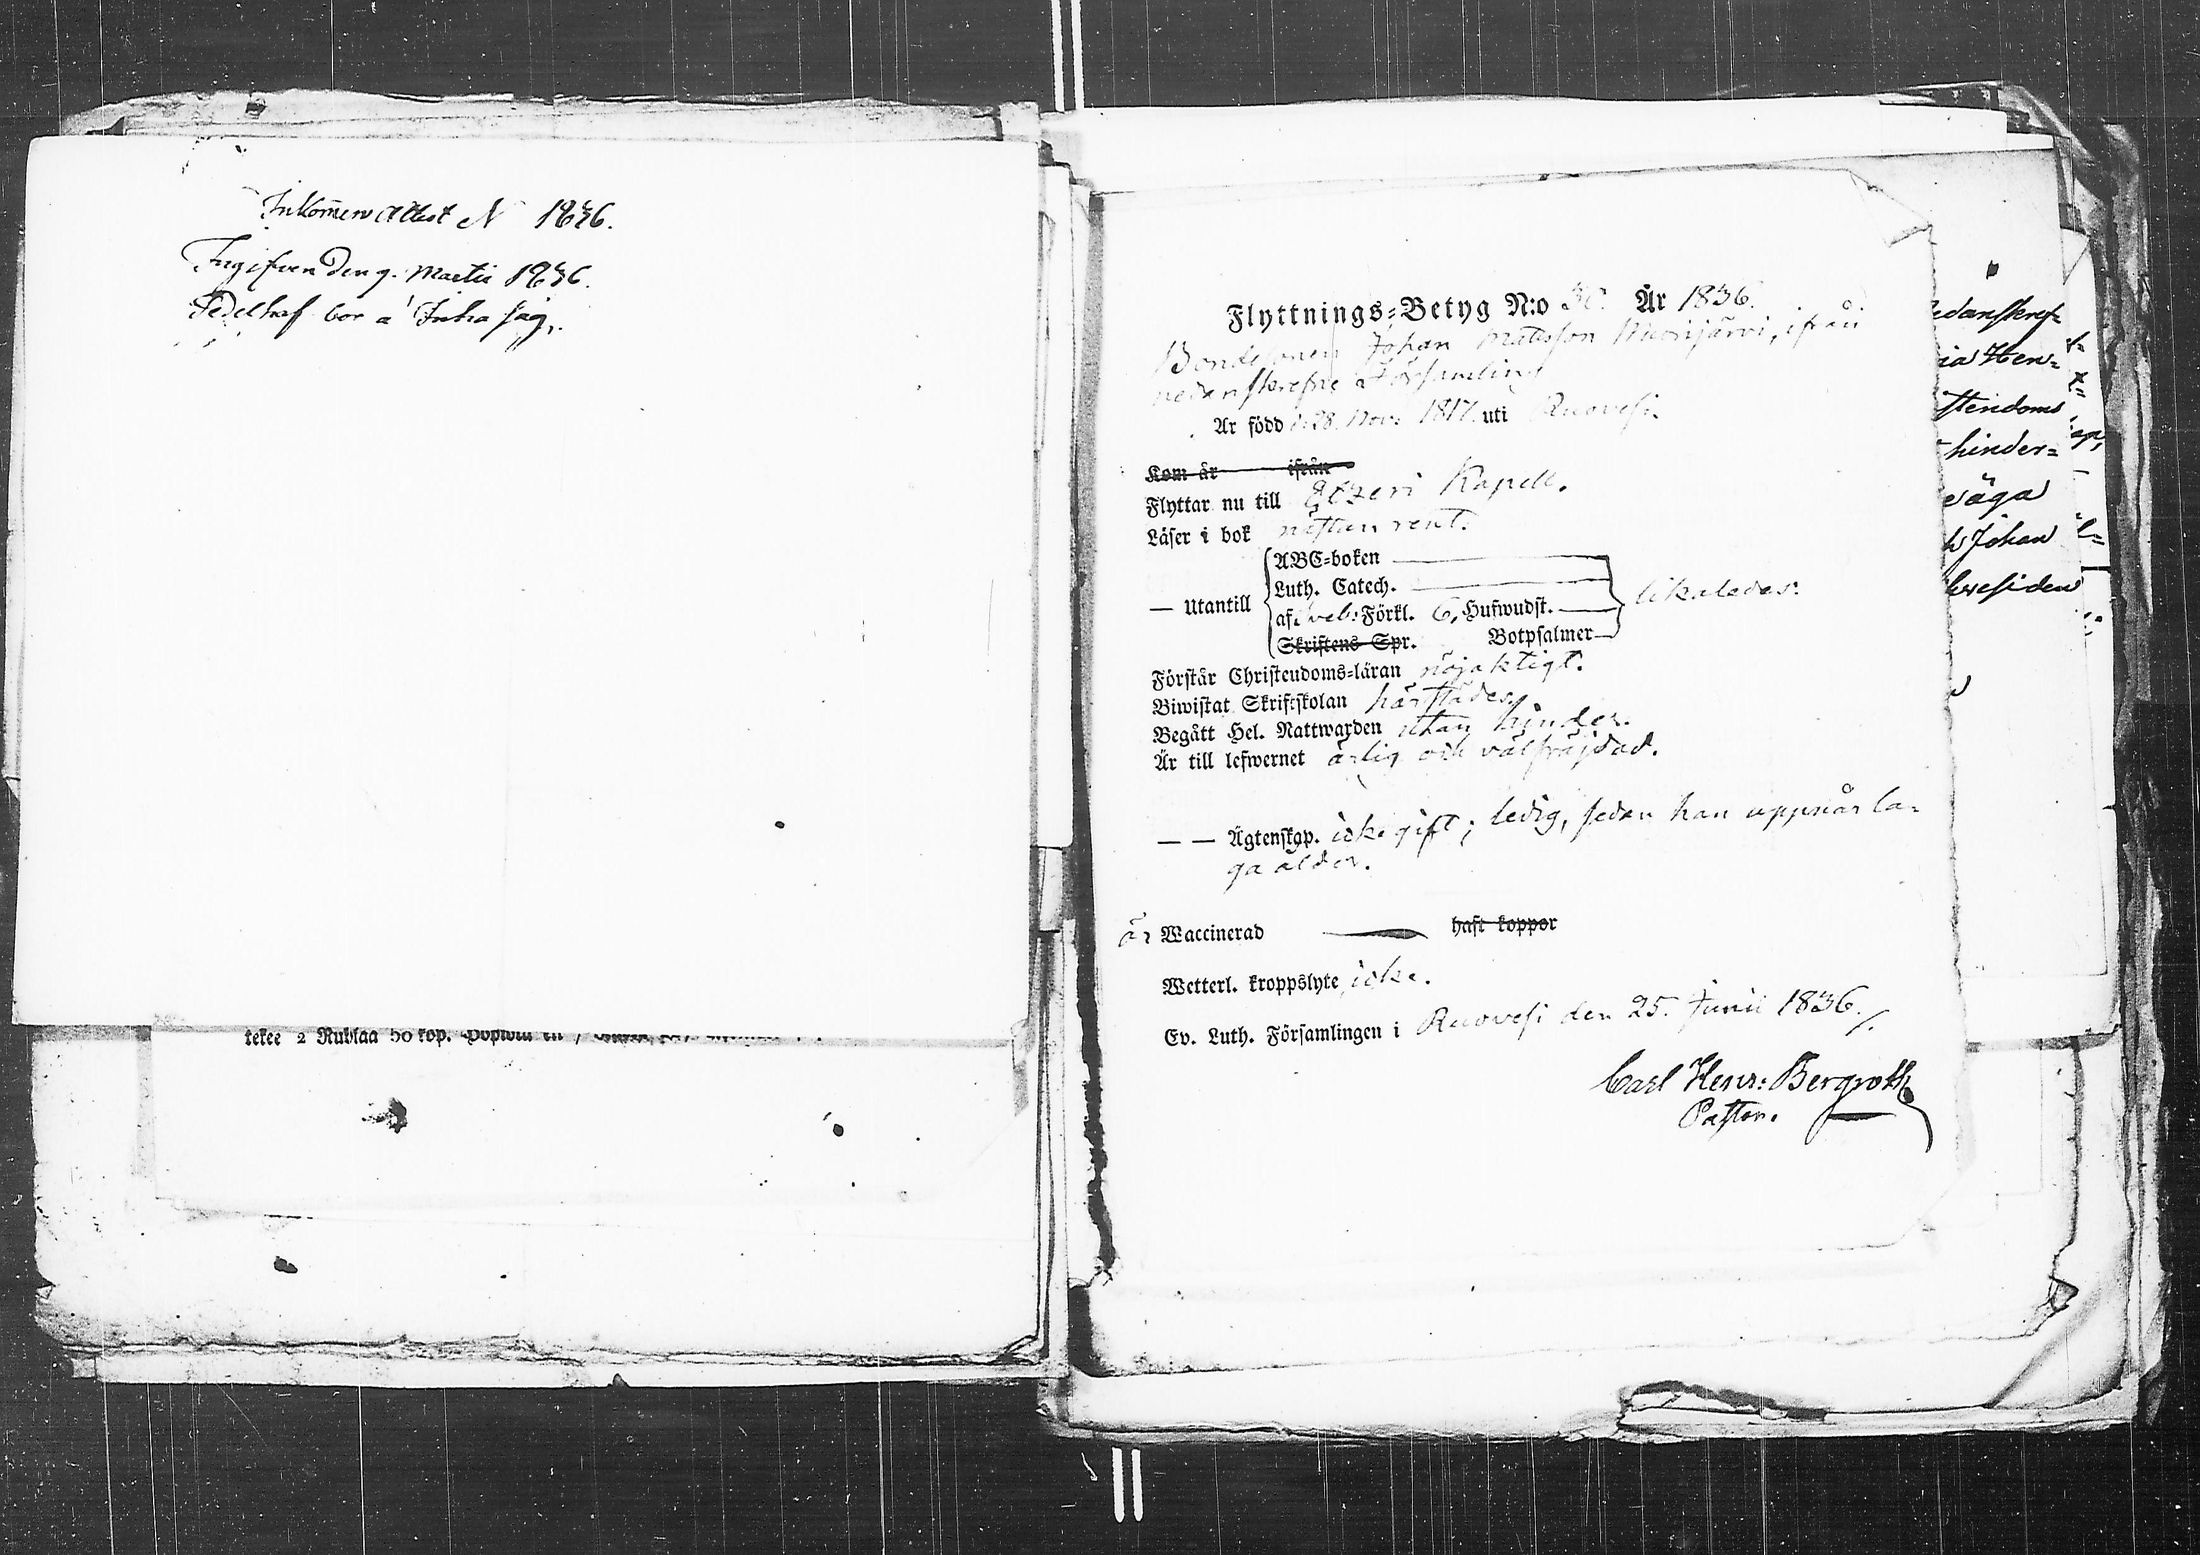 Inkom̃en Attest N 1836.
Ingifven Den 9. Martii 1836.
bor å Inha såg.
tekee 2 Rublaa 50 kop.
Flyttnings-Betyg N:o 30. År 1836.
Bondesonen Johan Matsson, ifrån
nedanskrefne Församling
Är född d. 28. Nov: 1817. uti Ruovesi.
Kom år ifrån
Flyttar nu till Etzeri Kapell.
Läser i bok nästan rent.
— Utantill
ABC-boken
Luth. Catech.
af Sveb: Förkl. 6, Hufwudst.
Skriftens Spr. Botpsalmer
likaledes.
Förstår Christendoms-läran nöjaktigt.
Biwistat Skriftskolan härstädes.
Begått Hel. Nattwarden utan hinder.
Är till lefwernet ärlig och välfräjdad.
— — Ägtenskap. icke gift; ledig, sedan han uppnår la-
ga ålder.
är Waccinerad haft koppor
Wetterl. kroppslyte icke.
Ev. Luth. Församlingen i Ruovesi den 25. Junii 1836./.
Carl Henr: Bergroth
Pastor.
edanskref-
ia Hen-
stendoms
hinder-
äga
Johan